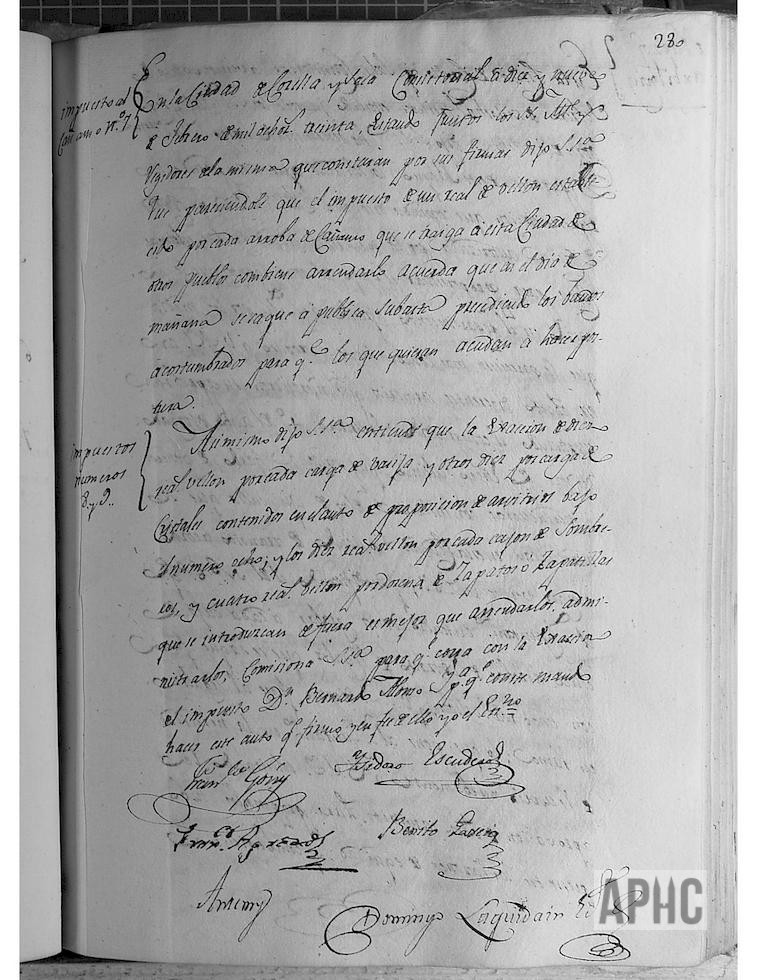 280
impuesto al
Cañamo nº 7
En la Ciudad de Corella y Sala Consistorial a diez y nueve
de Febrero de mil ochos. treinta, Estando juntos los S.S. Alc. y
Regidores de la misma que constarán por sus firmas dijo S.sia
Que pareciendole que el impuesto de un real de vellon estable-
cido por cada arroba de Cañamo que se traiga á esta Ciudad de
otros Pueblos combiene arrendarlo acuerda que en el dia de
mañana se saque á publica subasta precediendo los bandos
acostumbrados para q.e los que quieran acudan á hacer pos-
tura.
impuestos
numeros
8 y 9..
Asimismo dijo S.sia entiende que la Exaccion de diez
rea.s vellon por cada carga de bajilla y otros diez por carga de
Cristales contenidos en el auto de proposicion de arvitrios bajo
el numero ocho; y los diez rea.s vellon por cada cajon de Sombre-
ros, y cuatro rea.s vellon por docena de Zapatos ó Zapatillas
que se introduzcan de fuera es mejor que arrendarlos, admi-
nistrarlos, Comisiona S.sia para q.e corra con la Exaccion
el impuesto D.n Bernardo Alonso y p.a q.e conste mandó
hacer este auto q.e firmó y en fe de ello yo el Es.no
Fran.co Goñi
Ysidoro Escudero
Fran.co Agreda
Benito
Antemy
Domingo Laquidain
APHC